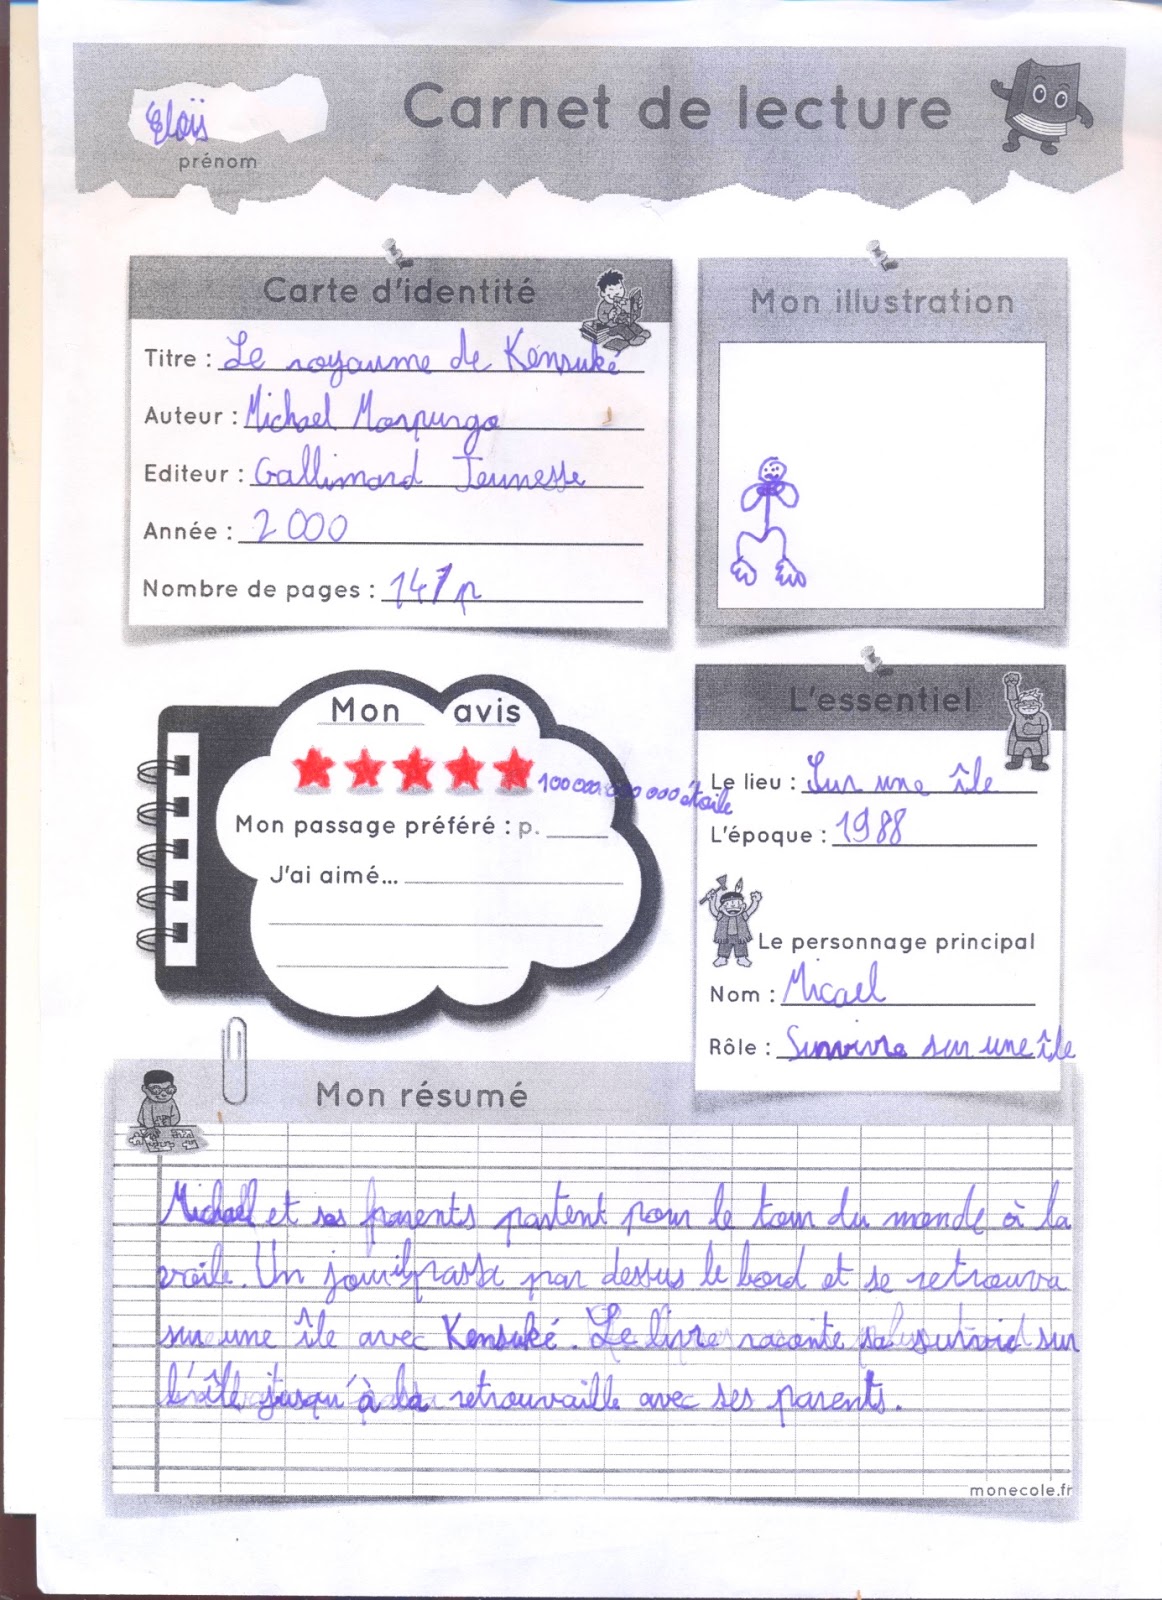 Carnet de lecture
Eloïs
prénom
Carte d'identité
Titre : Le royaume de Kensuké
Auteur : Michael Morpurgo
Editeur : Gallimard Jeunesse
Année : 2000
Nombre de pages : 141 p
Mon illustration
Mon avis
100 000 000 000 étoile
Mon passage préféré : p.
J'ai aimé...
L'essentiel
Le lieu : Sur une île
L'époque : 1988
Le personnage principal
Nom : Micael
Rôle : Survivre sur une île
Mon résumé
Michael et ses parents partent pour le tour du monde à la
voile. Un jour il passa par dessus le bord et se retrouva
sur une île avec Kensuké. Le livre raconte sa sur
l'île jusqu'à la retrouvaille avec ses parents.
monecole.fr